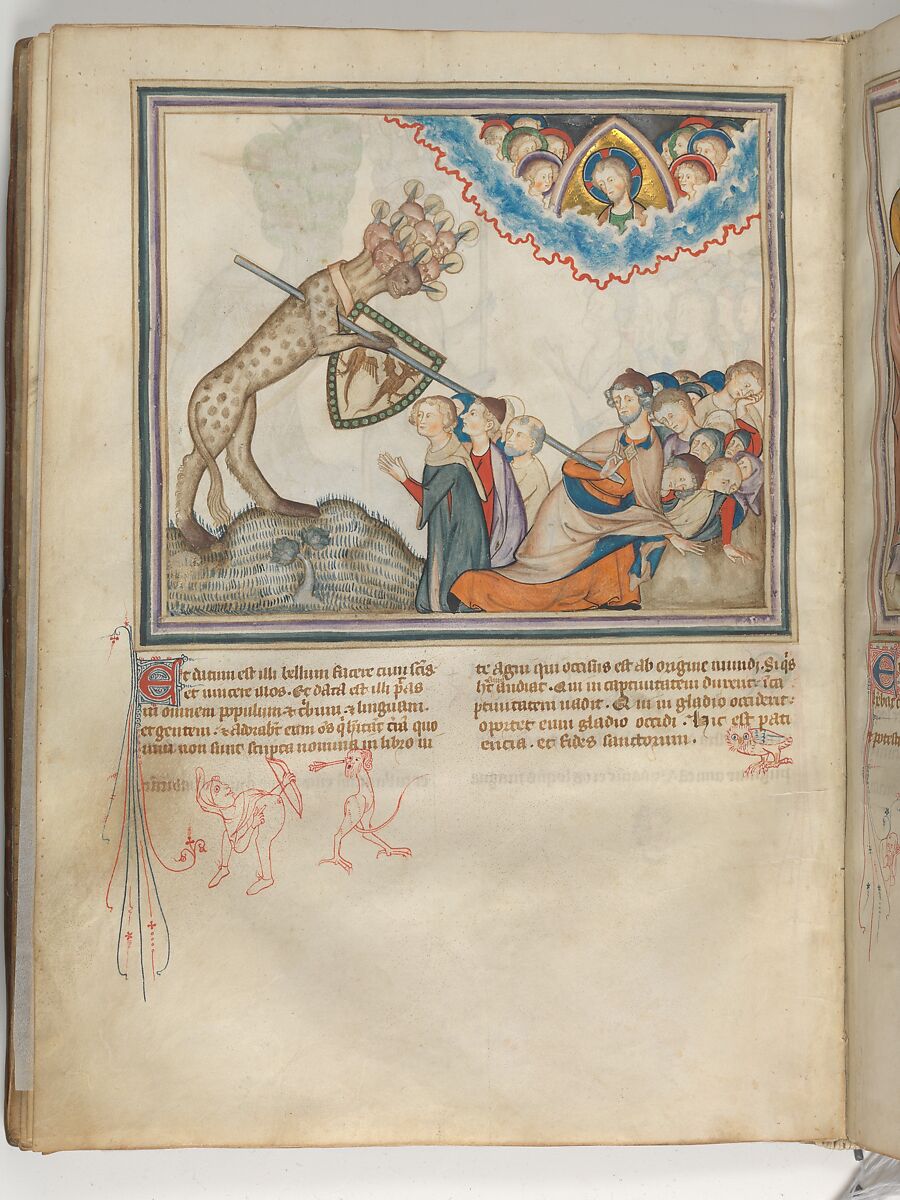 Et datum est illi bellum facere cum scīs
et uincere illos. Et data est illi p̄tas
in omnem populum & tribum. & linguam.
et gentem. & adorab̄t eum om̄s q̇ h̄itāt quo
rum non sunt scripta nomina in libro ui
te agni qui occisus est ab origine mundi. Si qͥs
h̄t audiat. Qui in captiuitatem duxerit. ī ca
ptiuitatem uadit. Qui in gladio occiderit.
oportet eum gladio occidi. Hic est pati
encia. et fides sanctorum.